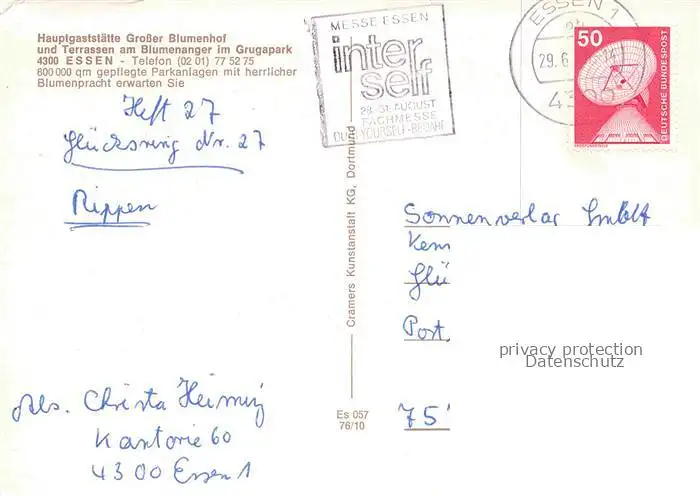 Hauptgaststätte Großer Blumenhof
und Terrassen am Blumenanger im Grugapark
4300 ESSEN - Telefon (02 01) 77 52 75
600 000 qm gepflegte Parkanlagen mit herrlicher
Blumenpracht erwarten Sie
Heft 27
Glücksring Nr. 27
Rippen
Abs. Christa Heimig
Kantorie 60
4300 Essen 1
Cramers Kunstanstalt KG, Dortmund
Es 057
76/10
MESSE ESSEN
inter
self
29.-31. AUGUST
FACHMESSE
YOURSELF-BEDARF
ESSEN 1
29.6
50
DEUTSCHE BUNDESPOST
Sonnenverlag GmbH
Kenn
Glü
Post.
75
privacy protection
Datenschutz